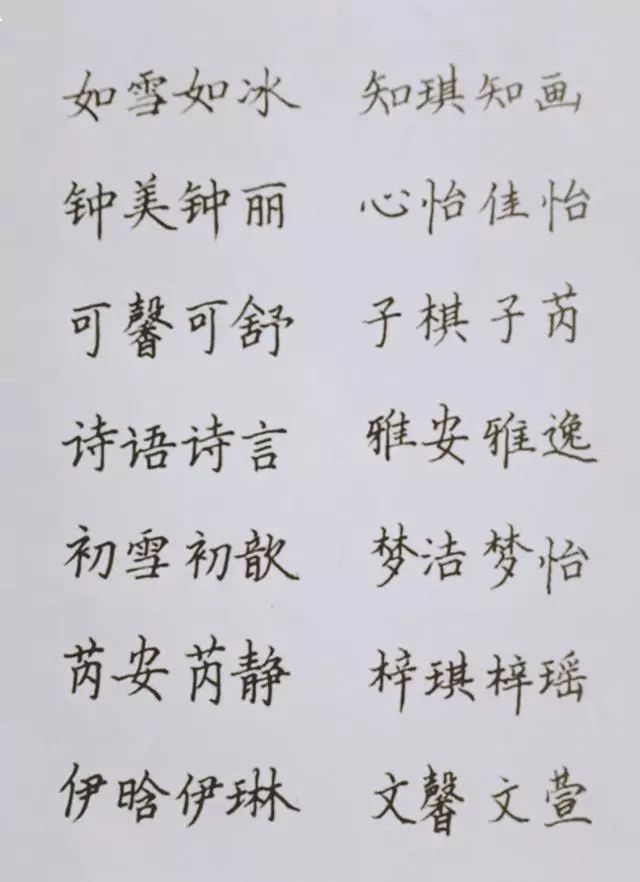 如雪如冰 知琪知画
钟美钟丽 心怡佳怡
可馨可舒 子棋子芮
诗语诗言 雅安雅逸
初雪初歆 梦洁梦怡
芮安芮静 梓琪梓瑶
伊晗伊琳 文馨文萱